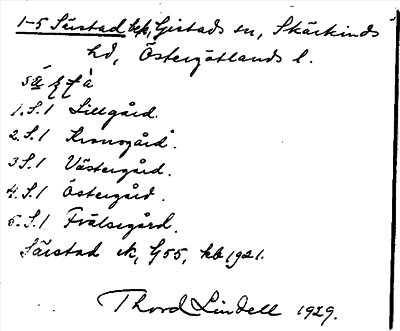 1-5 Särstad kp, Gistads sn, Skärkinds
hd, Östergötlands l.
1. S. 1 Lillgård.
2. S. 1 Kronogård.
3 S. 1 Västergård.
4. S. 1 Östergård.
5. S. 1 Frälsegård.
Särstad ek, G55, kb 1921.
Thord Lindell 1929.